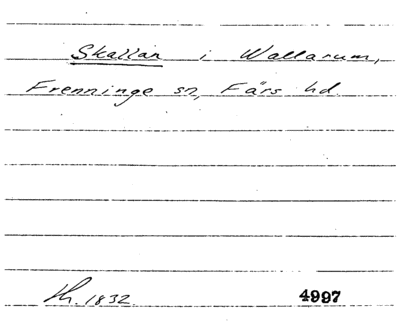 Skallan i Wallarum,
Frenninge sn, Färs hd.
Th. 1832 4997